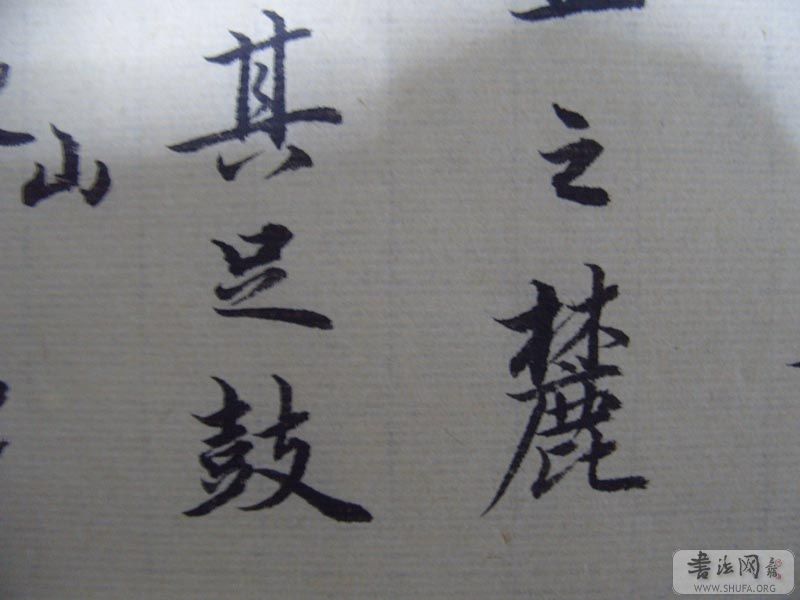 之麓
其足鼓
山
書法网
WWW.SHUFA.ORG